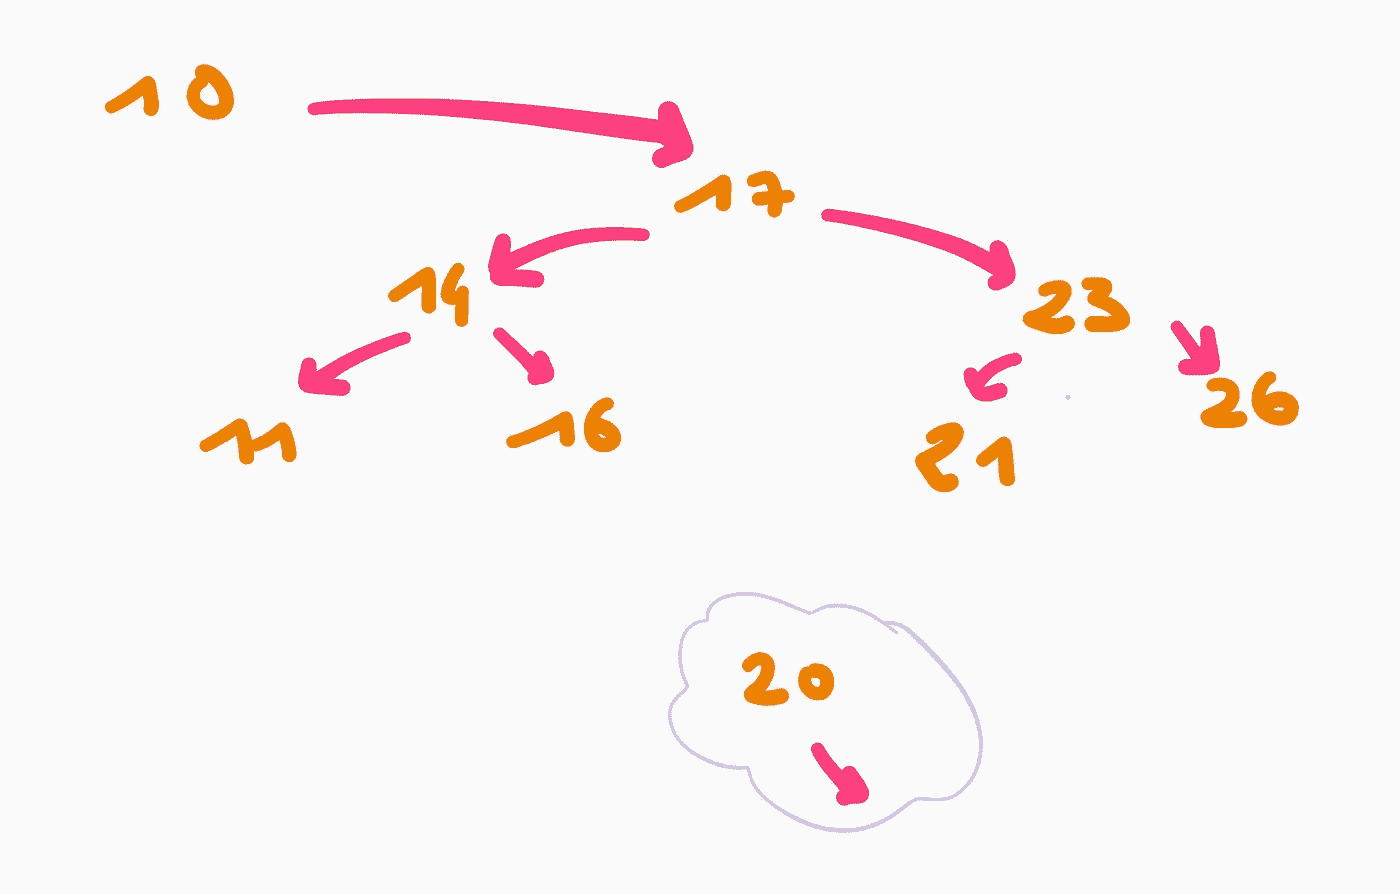 10
17
14
23
11
16
21
26
20